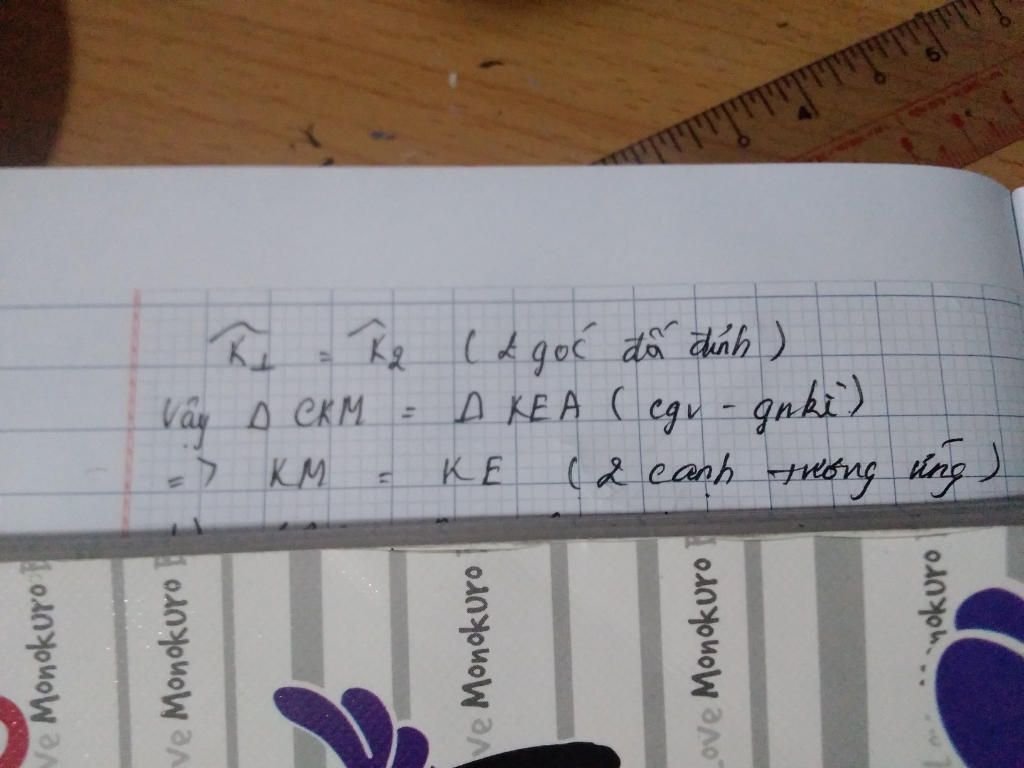 K̂1 = K̂2 ( 2 góc đối đỉnh )
Vậy Δ CKM = Δ KEA ( cgv - gnkì )
=> KM = KE ( 2 cạnh tương ứng )
4
5
ove Monokuro
ve Monokuro
ve Monokuro
Love Monokuro
nokuro